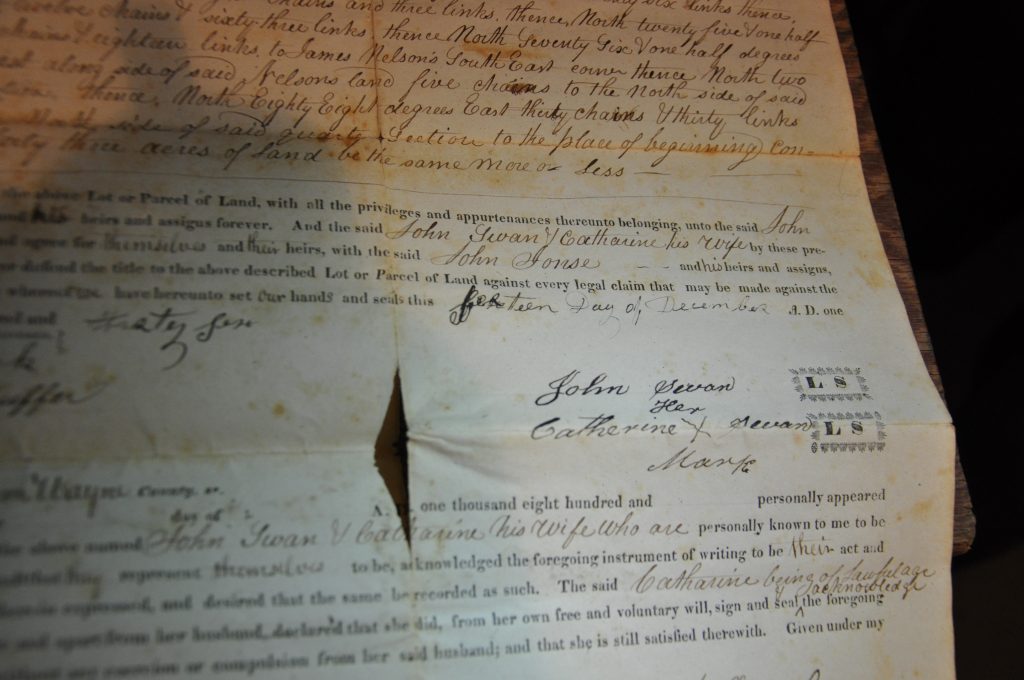 chains and three links, thence,
twelve chains & sixty three links thence North twenty five & one half
chains & eighteen links, to James Nelson's South East corner thence North two
side of said Nelsons land five chains to the North side of said
thence, North Eighty Eight degrees East thirty chains & thirty links
side of said quarter Section to the place of beginning Con-
three acres of Land be the same more or less —
the above Lot or Parcel of Land, with all the privileges and appurtenances thereunto belonging, unto the said John
heirs and assigns forever. And the said John Swan & Catharine his wife by these pre-
and agree for themselves and their heirs, with the said John Fonse — — and his heirs and assigns,
defend the title to the above described Lot or Parcel of Land against every legal claim that may be made against the
have hereunto set our hands and seals this Day of December A. D. one
hundred and
John Swan L S
Her
Catherine X Swan L S
Mark
Wayne County, ss.
A. D. one thousand eight hundred and personally appeared
the above named John Swan & Catharine his wife who are personally known to me to be
represent themselves to be, acknowledged the foregoing instrument of writing to be their act and
expressed, and desired that the same be recorded as such. The said Catharine being of lawful age
& acknowledge
and apart from her husband, declared that she did, from her own free and voluntary will, sign and seal the foregoing
coercion or compulsion from her said husband; and that she is still satisfied therewith. Given under my